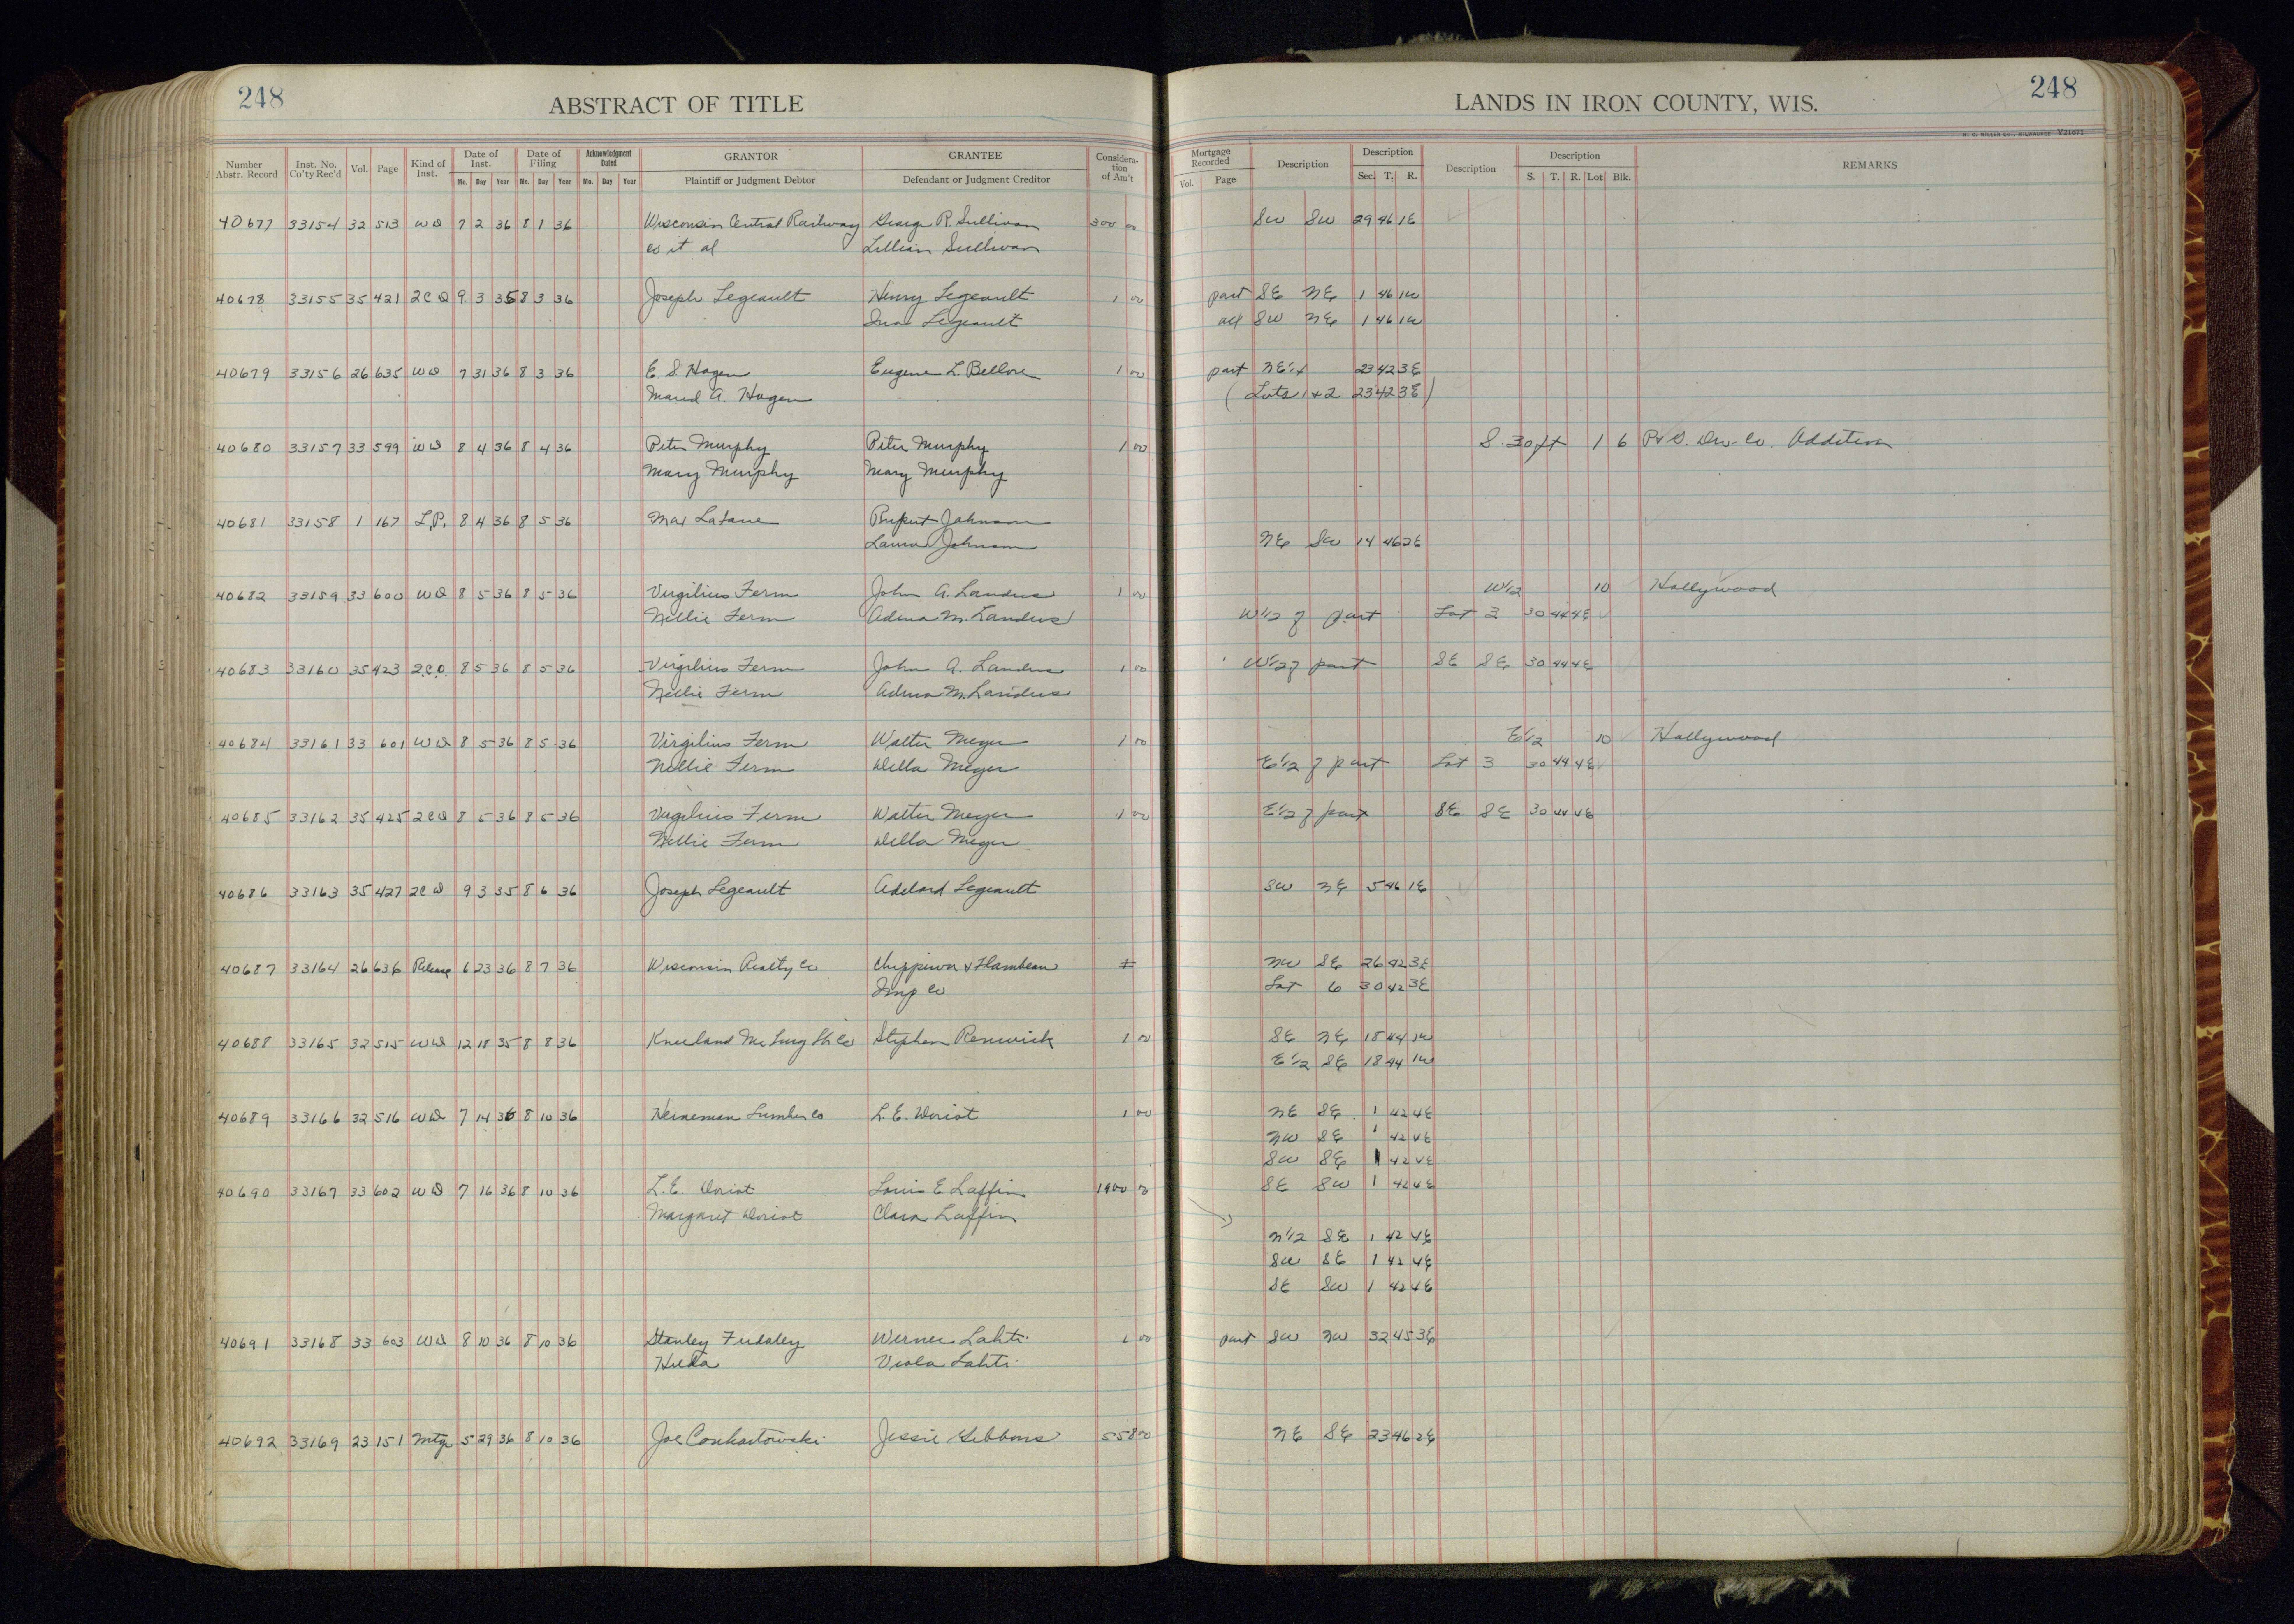 248 ABSTRACT OF TITLE LANDS IN IRON COUNTY, WIS. 248
H. D. MILLER CO., MILWAUKEE Y21671
Number Abstr. Record Inst. No. Co'ty Rec'd Vol. Page Kind of Inst. Date of Inst. Mo. Day Year Date of Filing Mo. Day Year Acknowledgment Dated Mo. Day Year GRANTOR Plaintiff or Judgment Debtor GRANTEE Defendant or Judgment Creditor Considera-tion of Am't Mortgage Recorded Vol. Page Description Description Sec. T. R. Description Description S. T. R. Lot Blk. REMARKS
40677 33154 32 513 WD 7 2 36 8 1 36 Wisconsin Central Railway George R. Sullivan 300 00 SW SW 29 46 1E
Co et al Lillian Sullivan
40678 33155 35 421 2CD 9 3 35 8 3 36 Joseph Legeault Henry Legeault 1 00 part SE NE 1 46 1W
Legeault all SW NE 1 46 1W
40679 33156 26 635 WD 7 31 36 8 3 36 E. S. Hagen Eugene L. Bellore 1 00 part NE1/4 23 42 3E
Maud A. Hagen (Lots 1+2 23 42 3E)
40680 33157 33 599 WD 8 4 36 8 4 36 Peter Murphy Peter Murphy 1 00 S. 30 ft 1 6 Addition
Mary Murphy Mary Murphy
40681 33158 1 167 L.P. 8 4 36 8 5 36 Max Johnson
Laura Johnson NE SW 14 46 2E
40682 33159 33 600 WD 8 5 36 8 5 36 Virgilius Ferm John A. Landus 1 00 W1/2 10 Hollywood
Nellie Ferm Adena M. Landus W1/2 of part Lot 3 30 44 4E
40683 33160 35 423 2.C.D. 8 5 36 8 5 36 Virgilius Ferm John A. Landus 1 00 W1/2 of part SE SE 30 44 4E
Nellie Ferm Adena M. Landus
40684 33161 33 601 WD 8 5 36 8 5 36 Virgilius Ferm Walter Meyer 1 00 E1/2 10 Hollywood
Nellie Ferm Della Meyer E1/2 of part Lot 3 30 44 4E
40685 33162 35 425 2CD 8 5 36 8 5 36 Virgilius Ferm Walter Meyer 1 00 E1/2 of part SE SE 30 44 4E
Nellie Ferm Della Meyer
40686 33163 35 427 2CD 9 3 35 8 6 36 Joseph Legeault Adelard Legeault SW NE 5 46 1E
40687 33164 26 636 Release 6 23 36 8 7 36 Wisconsin Realty Co Chippewa & Flambeau NW SE 26 42 3E
Imp Co Lot 6 30 42 3E
40688 33165 32 515 WD 12 18 35 8 8 36 Kneeland Mc Lurg Co Stephen Renwick 1 00 SE NE 18 44 1W
E1/2 SE 18 44 1W
40689 33166 32 516 WD 7 14 36 8 10 36 Heineman Lumber Co L. E. Doriot 1 00 NE SE 1 42 4E
NW SE 1 42 4E
SW SE 1 42 4E
40690 33167 33 602 WD 7 16 36 8 10 36 L. E. Doriot Louis E Laffin 1900 00 SE SW 1 42 4E
Margaret Doriot Clara Laffin
N1/2 SE 1 42 4E
SW SE 1 42 4E
SE SW 1 42 4E
40691 33168 33 603 WD 8 10 36 8 10 36 Stanley Fudaley Werner Lahti 1 00 part SW NW 32 45 3E
Hilda Viola Lahti
40692 33169 23 151 Mtg 5 29 36 8 10 36 Joe Jessie Gibbons 558 00 NE SE 23 46 2E